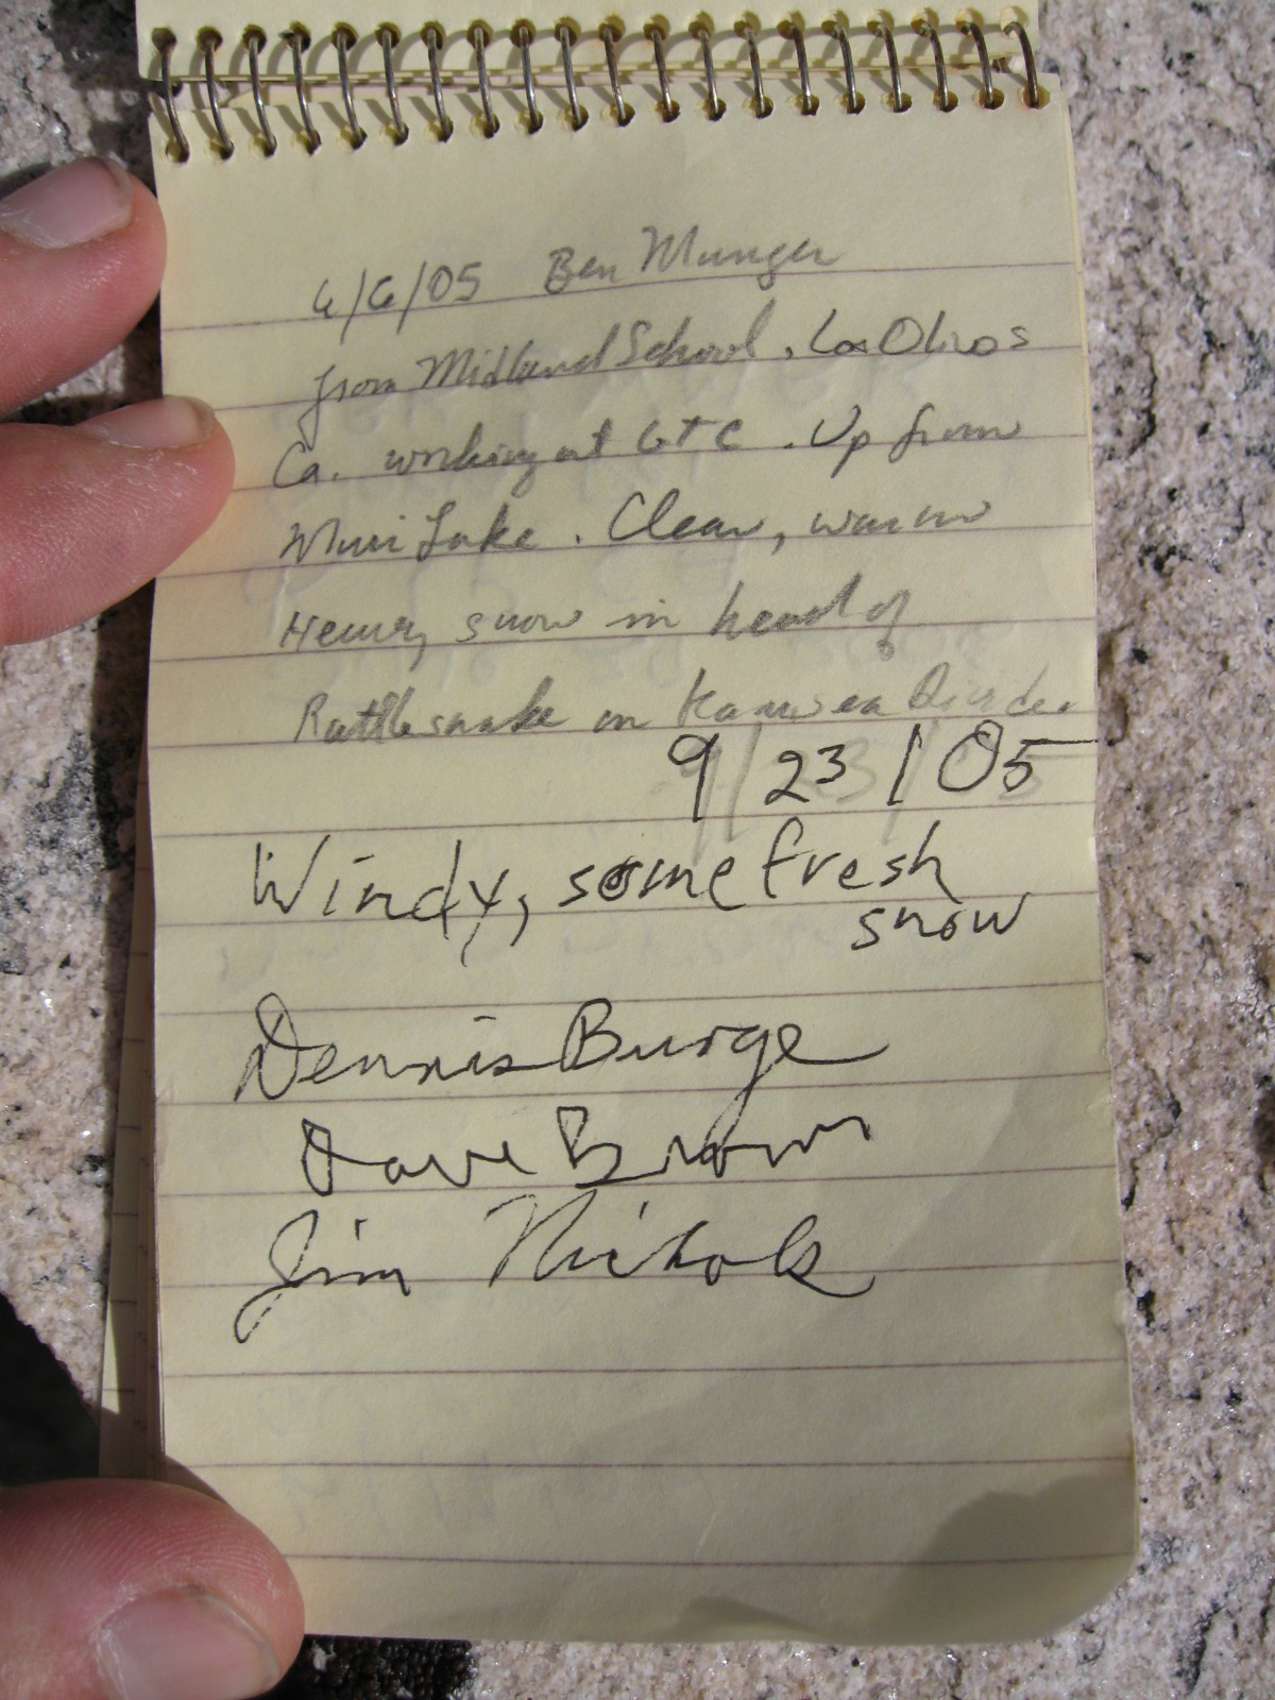 6/6/05 Ben Munger
from Midland School, Los Olivos
Ca. working at GTC. Up from
Muir Lake. Clear, warm
Heavy snow in head of
Rattlesnake on Kaweah Divide.
9/23/05
Windy, some fresh
snow
Dennis Burge
Dave Brown
Jim Nichols